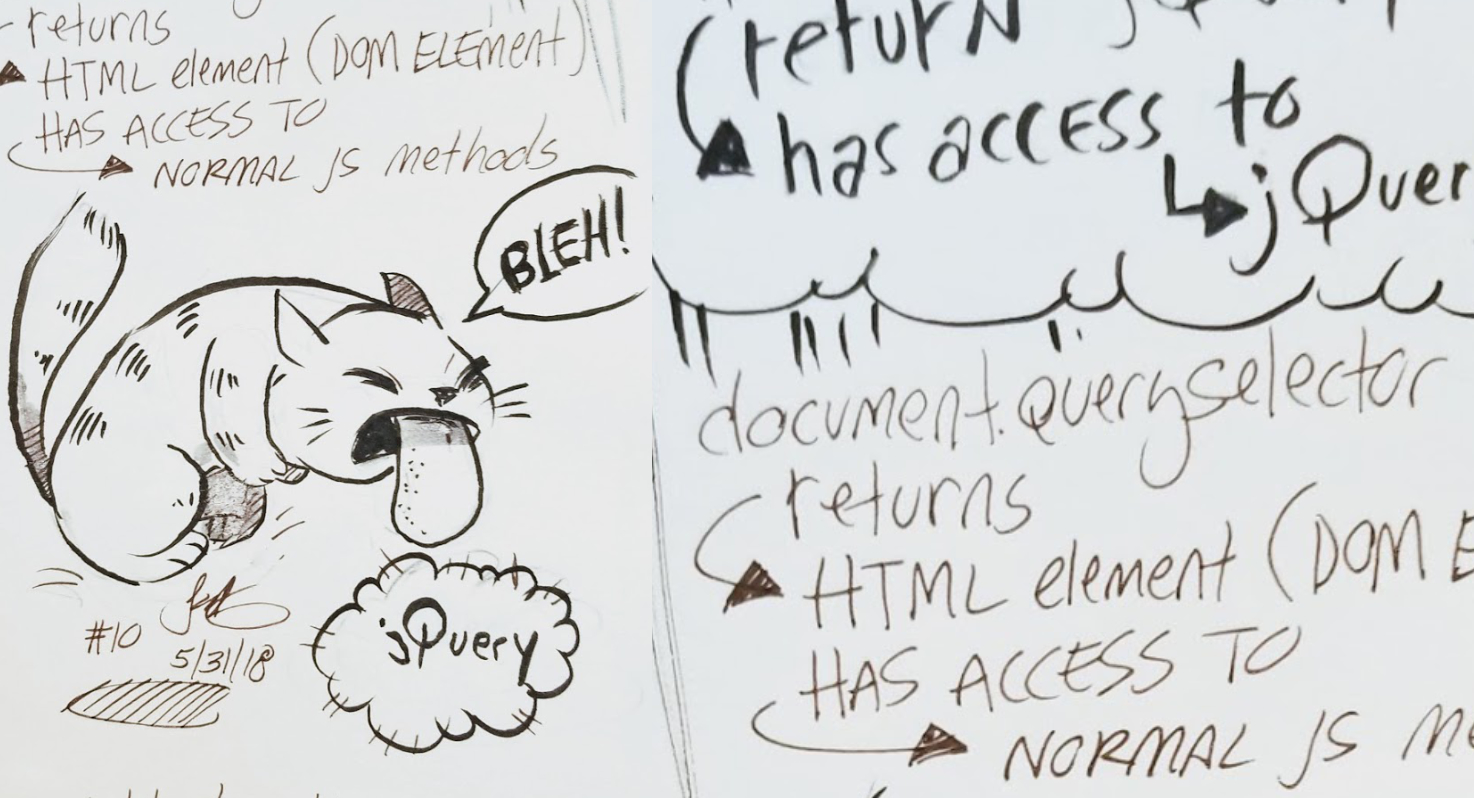 returns
HTML element (DOM ELEMENT)
HAS ACCESS TO
NORMAL JS methods
BLEH!
#10
5/31/18
jQuery
(return
has access to
jQuer
document.queryselector
returns
HTML element (DOM E
HAS ACCESS TO
NORMAL JS me